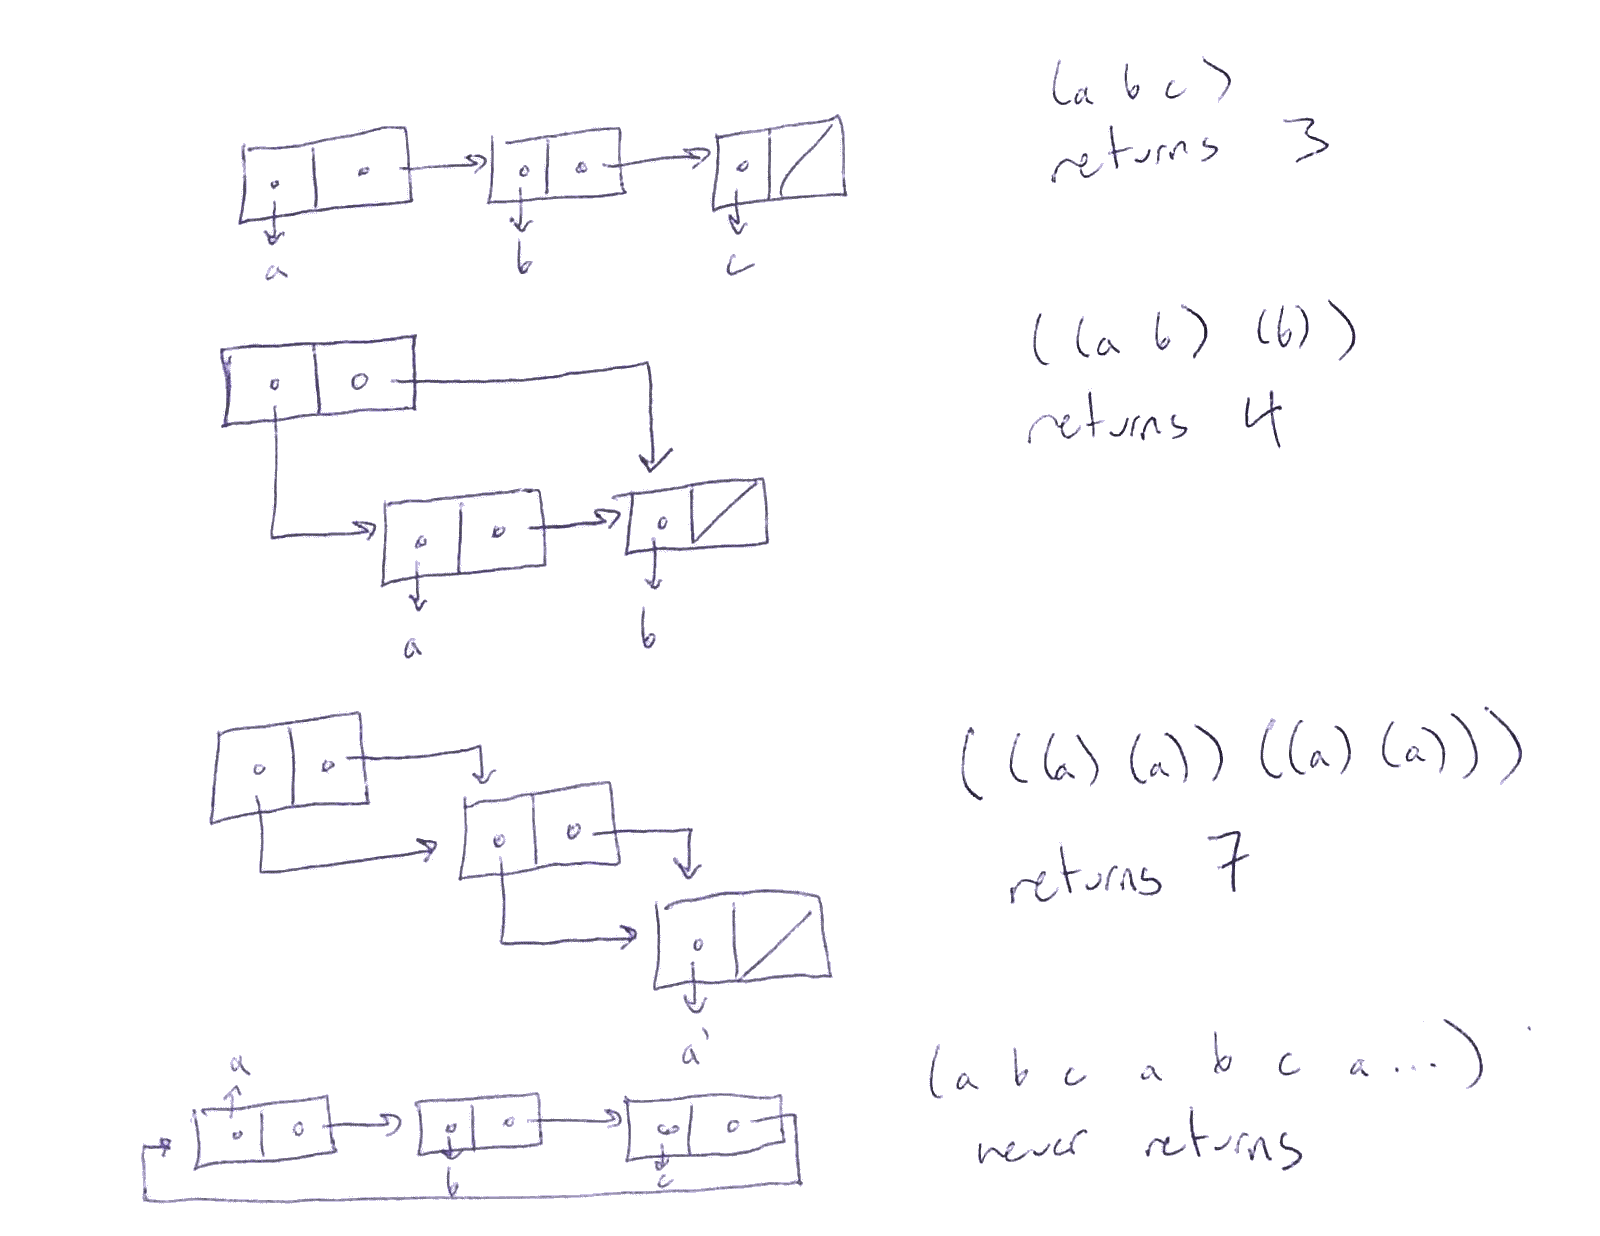 (a b c)
returns 3
a b c
((a b) (b))
returns 4
a b
(((a) (a)) ((a) (a)))
returns 7
a'
(a b c a b c a...)
never returns
a
b c